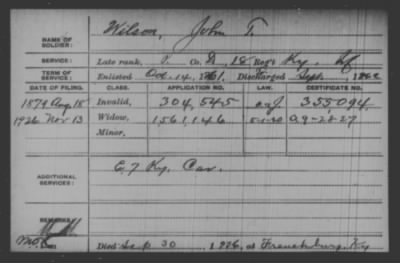 NAME OF SOLDIER: Wilson, John T.
SERVICE: Late rank, P. Co. D, 18 Reg't Ky. Inf
TERM OF SERVICE: Enlisted Oct. 14, 1861, Discharged Sept, 1862
DATE OF FILING. CLASS. APPLICATION NO. LAW. CERTIFICATE NO.
1879 Aug 18 Invalid, 304,545 355094
1926 Nov 13 Widow, 1561,146 5-1-20 A9-28-27
Minor,
ADDITIONAL SERVICES: E 7 Ky. Cav.
REMARKS:
Died Sep 30, 1926, at Frenchburg, Ky